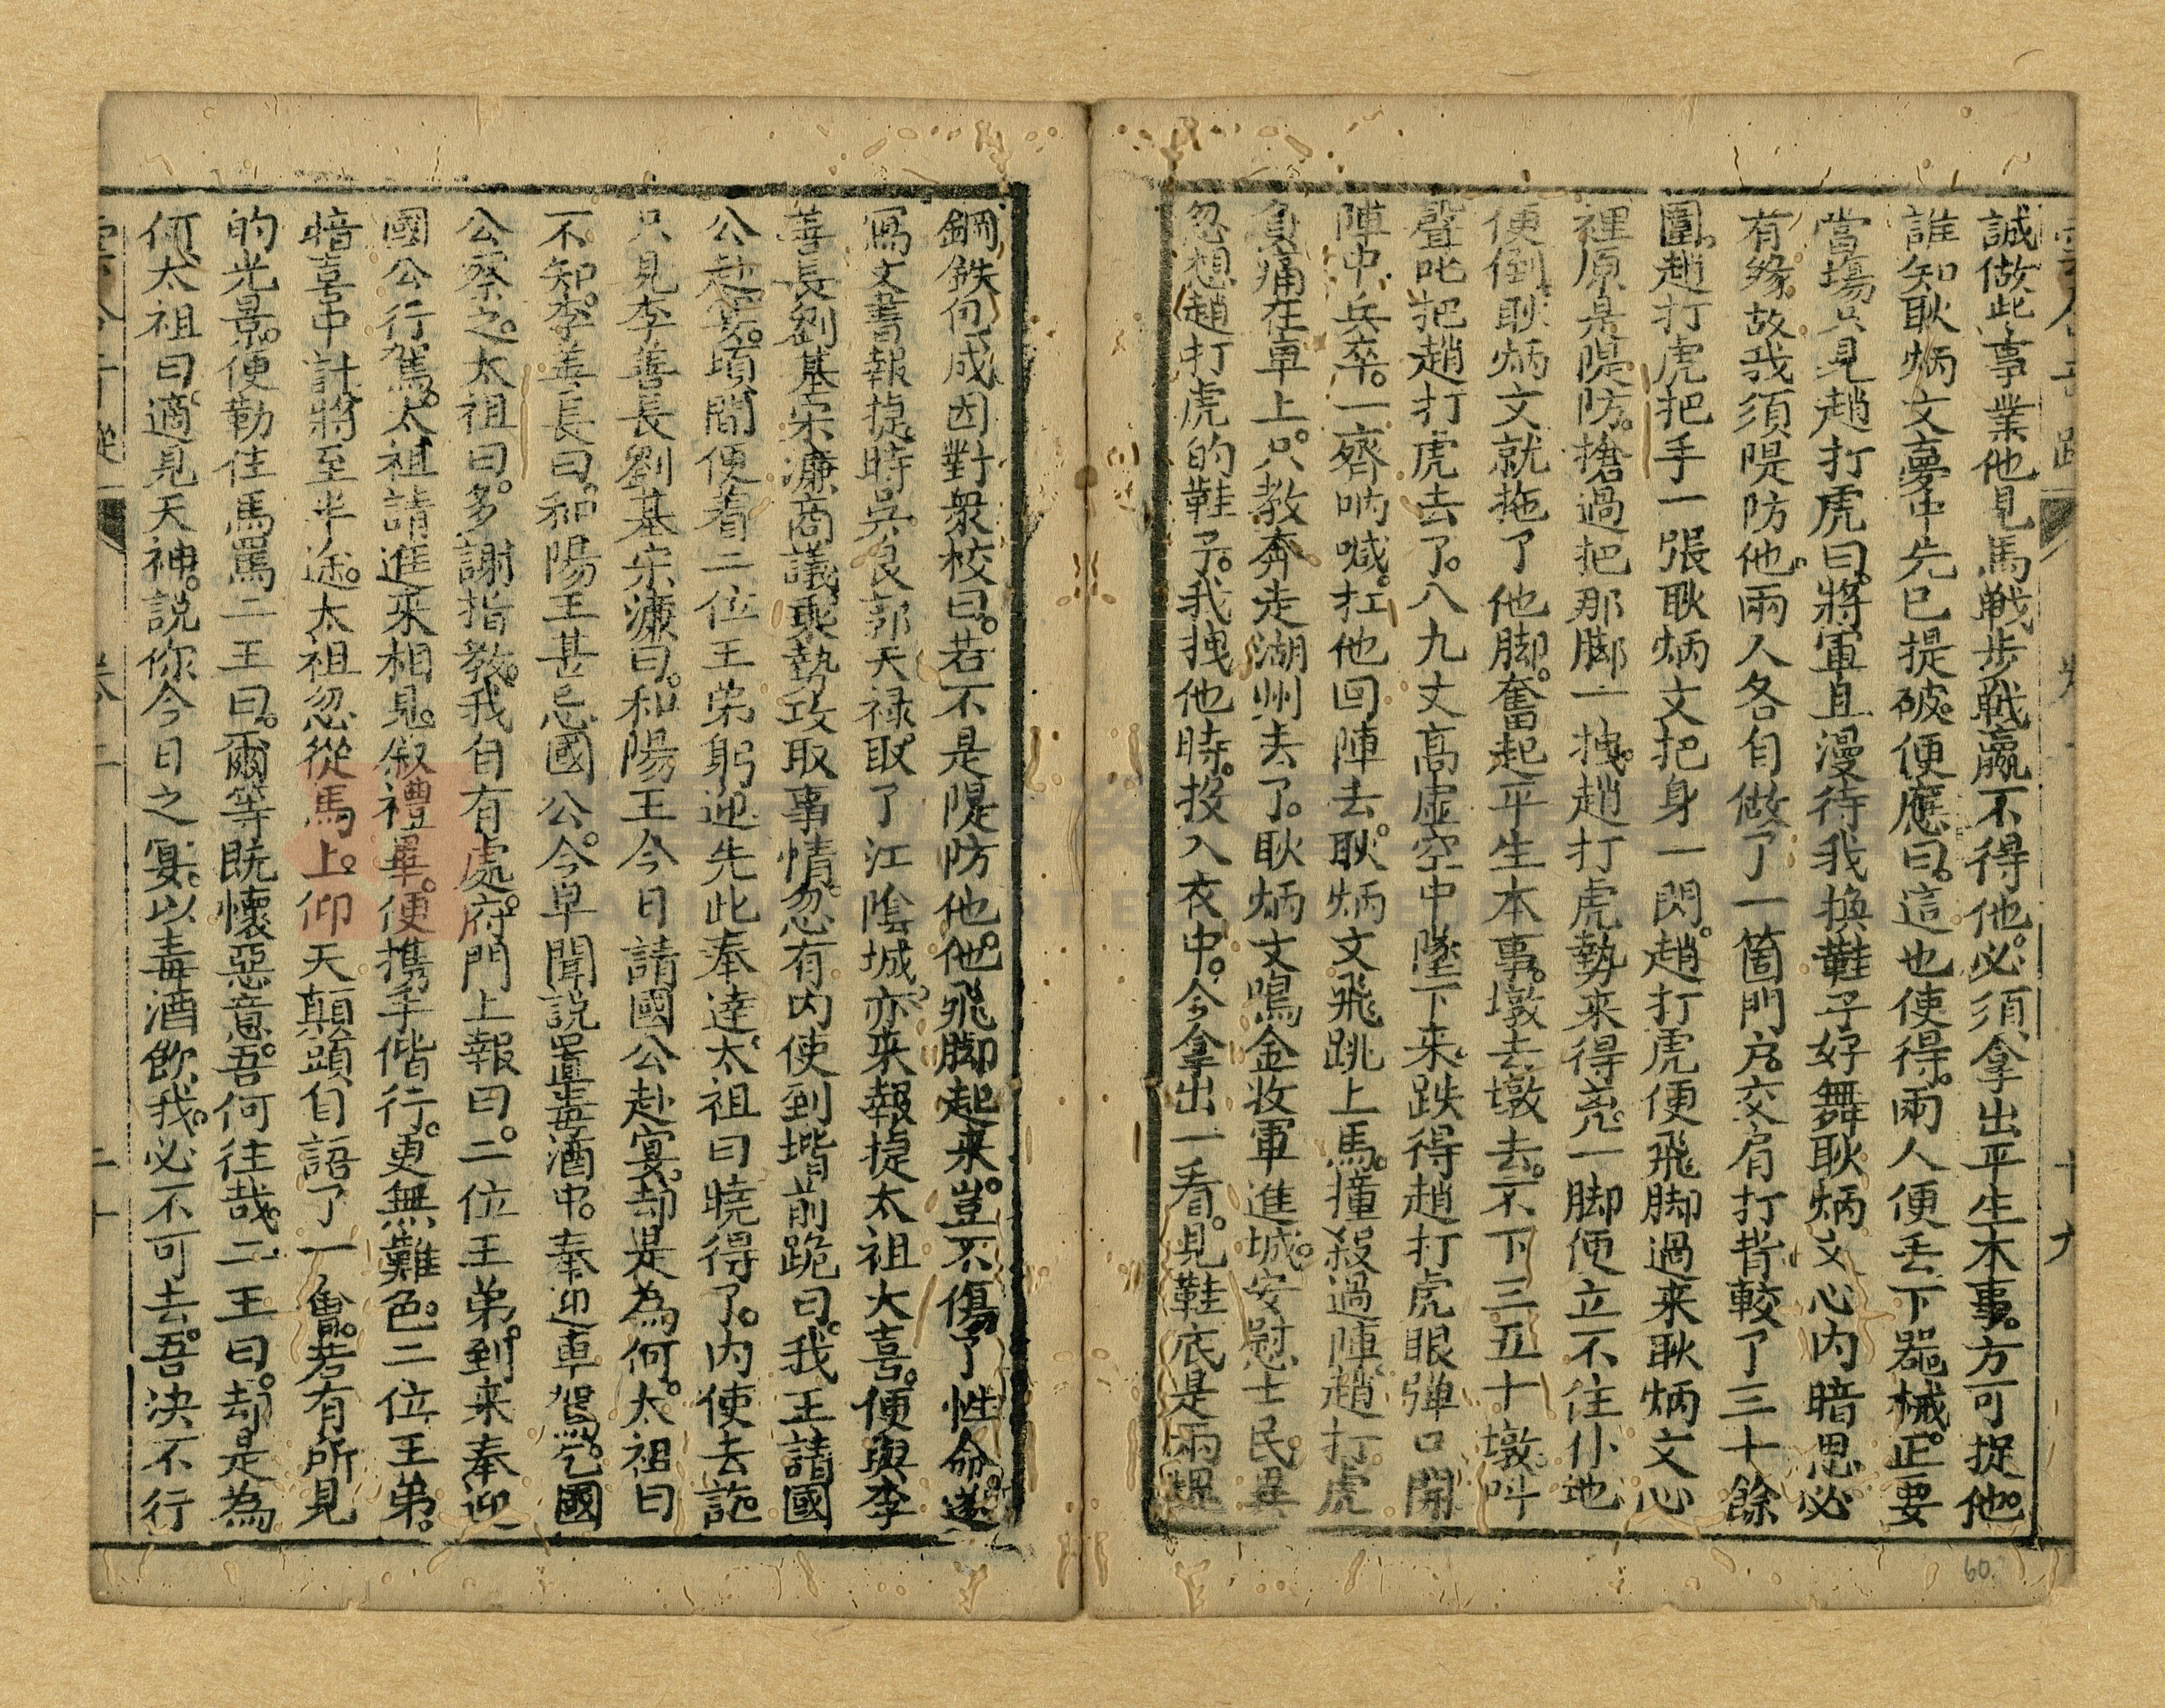 誠做此事業他見馬戦歩戦瀛不得他。必須拿出平生本事。方可捉他。
誰知耿炳文夢中先已提破。便應曰。這也使得。兩人便丟下器械。正要
當塲只見趙打虎曰。將軍且漫待我換鞋子好舞耿炳文心内暗思必
有緣故我須隄防他。兩人各自做了一箇門戶。交肩打背較了三十餘
圍。趙打虎把手一張耿炳文把身一閃。趙打虎便飛脚過来耿炳文心
裡原是隄防。搶過把那脚一拽。趙打虎勢来得兇。一脚便立不住仆地
便倒。耿炳文就拖了他脚。奮起平生本事。墩去墩去。不下三五十墩。叫
聲叱把趙打虎去了。八九丈高虛空中墜下来。跌得趙打虎眼弾口開
陣中兵卒。一齊吶喊。扛他回陣去。耿炳文飛跳上馬。撞殺過陣。趙打虎
負痛在車上。只教奔走湖州去了。耿炳文鳴金收軍進城。安慰士民畢
忽想趙打虎的鞋子。我拽他時。投入衣中。今拿出一看。見鞋底是兩塊
鋼鉄何成。因對衆校曰。若不是隄防他。他飛脚起来。豈不傷了性命。遂
寫文書報捷時吳良郭天禄取了江陰城。亦来報捷太祖大喜。便與李
善長劉基宋濂商議乘勢攻取事情。忽有内使到堦前跪曰。我王請國
公赴宴。頃間便着二位王弟躬迎先此奉達。太祖曰暁得了。内使去訖
只見李善長劉基宋濂曰。和陽王今日請國公赴宴。却是為何。太祖曰
不知。李善長曰。和陽王甚忌國公。今早聞說置毒酒中。奉迎車駕。乞國
公察之。太祖曰。多謝指教。我自有處。府門上報曰。二位王弟。到来奉迎
國公行駕。太祖請進来相見。叙禮畢。便携手偕行。更無難色。二位王弟。
暗喜中計。將至半途。太祖忽從馬上。仰天顛頭自語了一會。若有所見
的光景。便勒住馬罵二王曰。爾等既懷惡意。吾何往哉。二王曰。却是為
何。太祖曰。適見天神。説你今日之宴。以毒酒飲我。必不可去。吾決不行